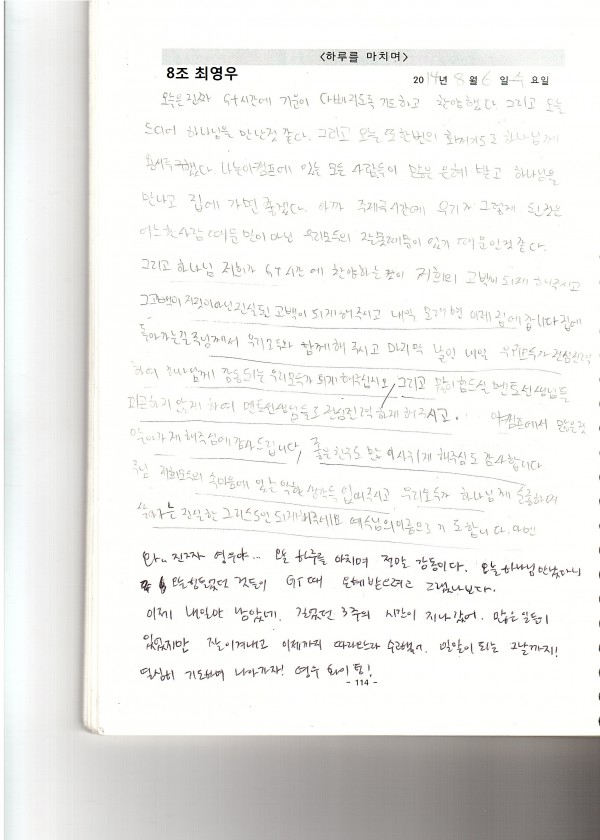 <하루를 마치며>
8조 최영우
2014년 8월 6일 수요일
오늘은 진짜 GT시간에 기운이 다빠지도록 기도하고 찬양했다. 그리고 오늘
드디어 하나님을 만난것 같다. 그리고 오늘 또한번의 하나님께
했다. 나는 이캠프에 있는 모든 사람들이 많은 은혜 받고 하나님을
만나고 집에 가면 좋겠다. 아까 시간에 그렇게 된것은
어느한사람 때문만이 아닌 우리모두의 잘못때문인것 같다.
그리고 하나님 저희가 GT시간에 찬양하는 것이 저희의 고백이 되게 해주시고
그고백이 거짓이아닌 진실된 고백이 되게 해주시고 내일 모래면 이제 집에 갑니다 집에
돌아가는길 주님께서 우리모두와 함께해 주시고 마지막 날인 내일 우리모두가 전심전력
하여 하나님께 우리모두가 되게 해주십시오 그리고 많이 힘드실 멘토선생님들
피곤하지 않게 하여 멘토선생님들도 전심전력 하게 해주시고. 이캠프에서 많은것
알아가게 해주심에 감사드립니다, 좋은친구도 많이 사귀게 해주심도 감사합니다
주님 저희모두의 속마음에 있는 악한 생각들 해주시고 우리모두가 하나님께
살아가는 진실한 그리스도인 되게해주세요 예수님의이름으로 기도합니다. 아멘
와.. 진짜 영우야... 오늘 하루를 마치며 정말 감동이다. 오늘 하나님 만났다니
오늘 힘들었던 것들이 GT때 은혜 받으려고 그랬나보다.
이제 내일만 남았네. 길었던 3주의 시간이 지나갔어. 많은 일들이
있었지만 잘 이겨내고 이제까지 따라오느라 수고했어. 밀알이 되는 그날까지!
열심히 기도하며 나아가자! 영우 화이팅!
- 114 -